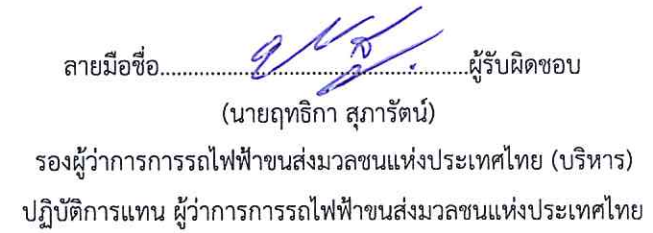 ลายมือชื่อ....................................................ผู้รับผิดชอบ
(นายฤทธิกา สุภารัตน์)
รองผู้ว่าการการรถไฟฟ้าขนส่งมวลชนแห่งประเทศไทย (บริหาร)
ปฏิบัติการแทน ผู้ว่าการการรถไฟฟ้าขนส่งมวลชนแห่งประเทศไทย